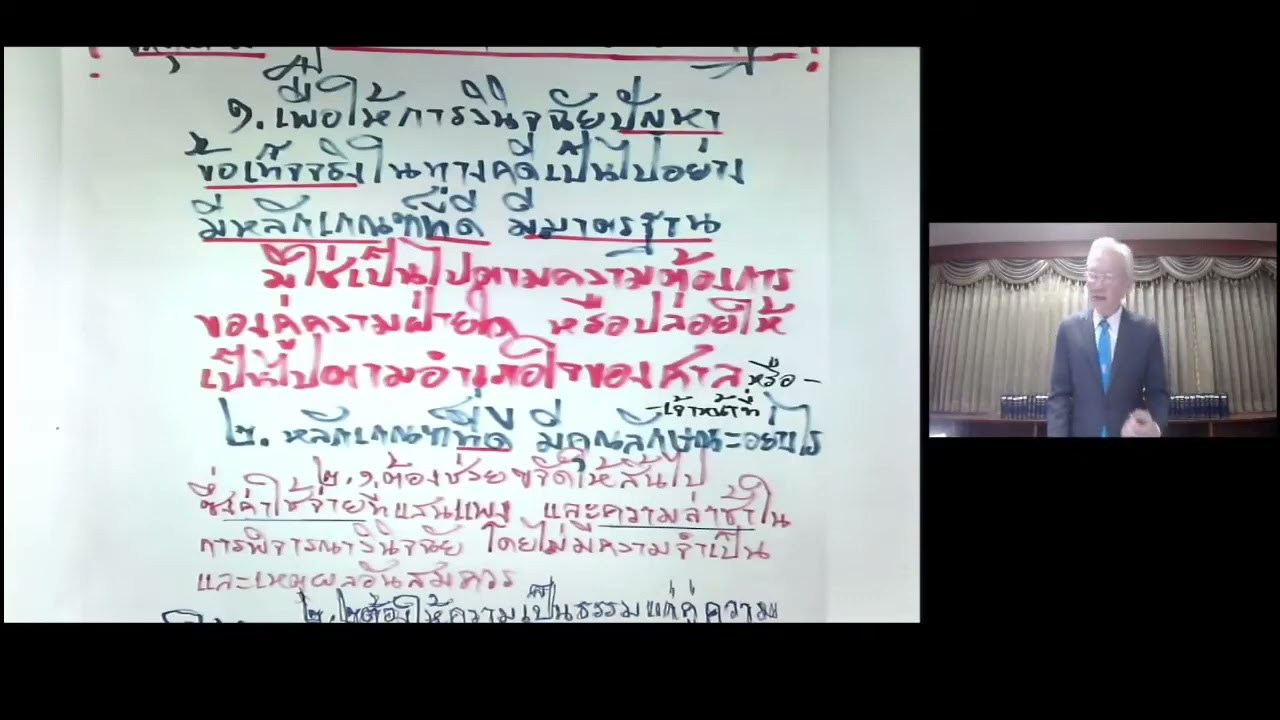 ๑. เพื่อให้การวินิจฉัยปัญหา
ข้อเท็จจริงในทางคดีเป็นไปอย่าง
มีหลักเกณฑ์ที่ดี มีมาตรฐาน
มิใช่เป็นไปตามความต้องการ
ของคู่ความฝ่ายใด หรือปล่อยให้
เป็นไปตามอำเภอใจของศาล หรือ -
- เจ้าหน้าที่
๒. หลักเกณฑ์ที่ดี มีคุณลักษณะอย่างไร
๒.๑ ต้องช่วยขจัดให้สิ้นไป
ซึ่งค่าใช้จ่ายที่แสนแพง และความล่าช้าใน
การพิจารณาวินิจฉัย โดยไม่มีความจำเป็น
และเหตุผลอันสมควร
๒.๒ ต้องให้ความเป็นธรรมแก่คู่ความ